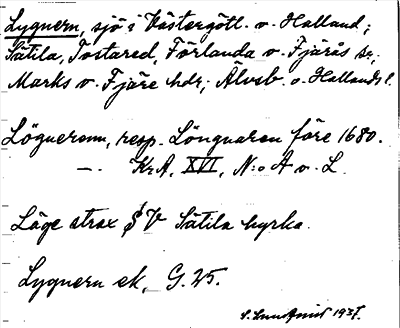 Lygnern, sjö i Västergötl. o. Halland;
Sätila, Tostared, Förlanda o. Fjärås sr,
Marks o. Fjäre hdr; Älvsb. o. Hallands l.
Lögnerenn, resp. Löngnaren före 1680.
—. Kr.A. XVI, N:o A o. L.
Läge strax SV Sätila kyrka.
Lygnern ek, G. 25.
1937.